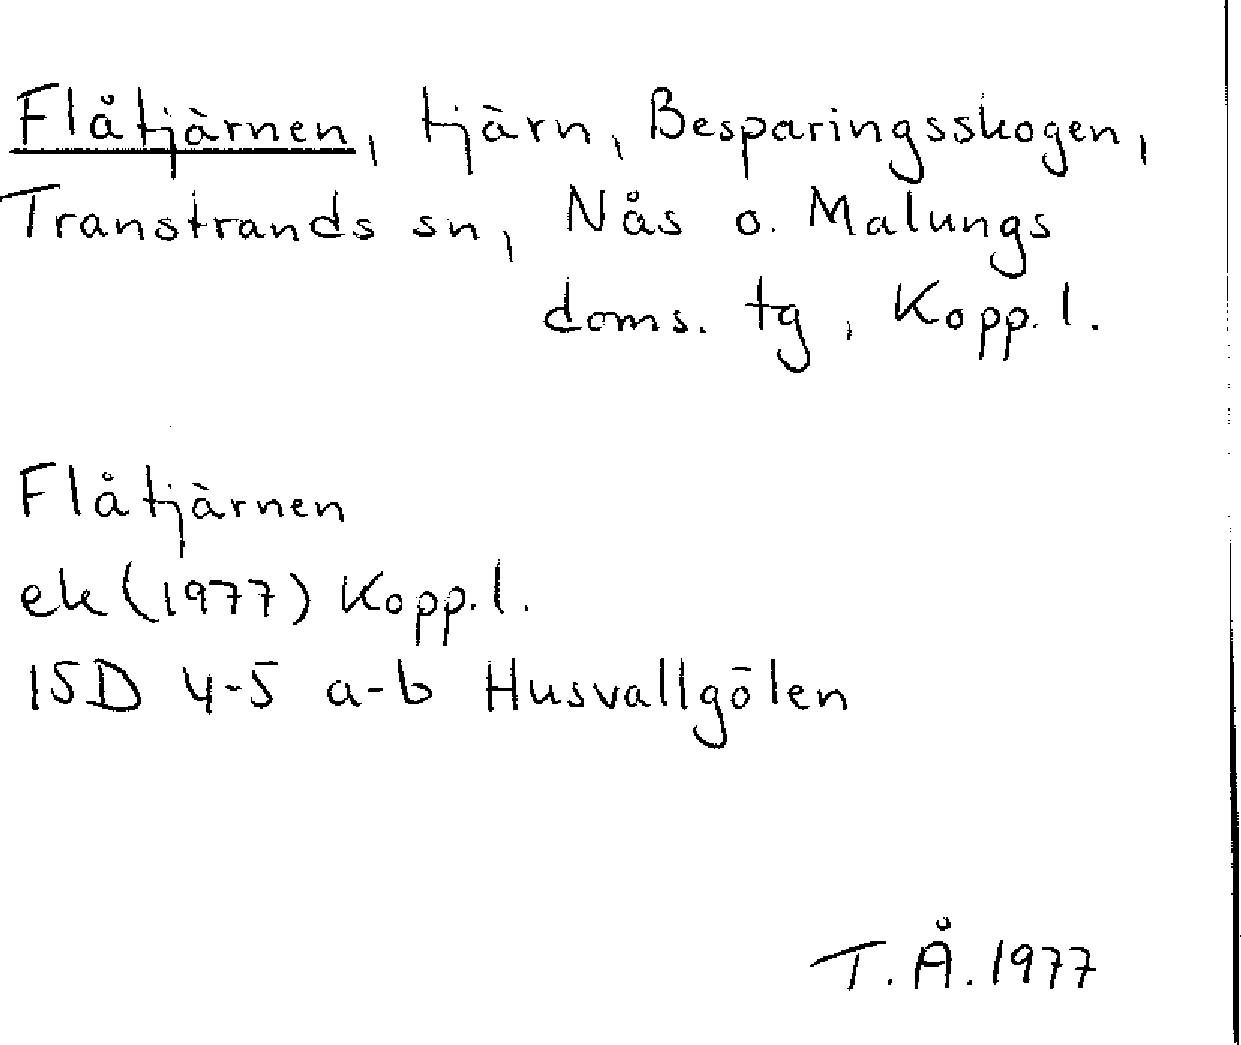 Flåtjärnen, tjärn, Besparingsskogen,
Transtrands sn, Nås o. Malungs
doms. tg, Kopp. l.
Flåtjärnen
ek (1977) Kopp. l.
15D 4-5 a-b Husvallgölen
T. Å. 1977